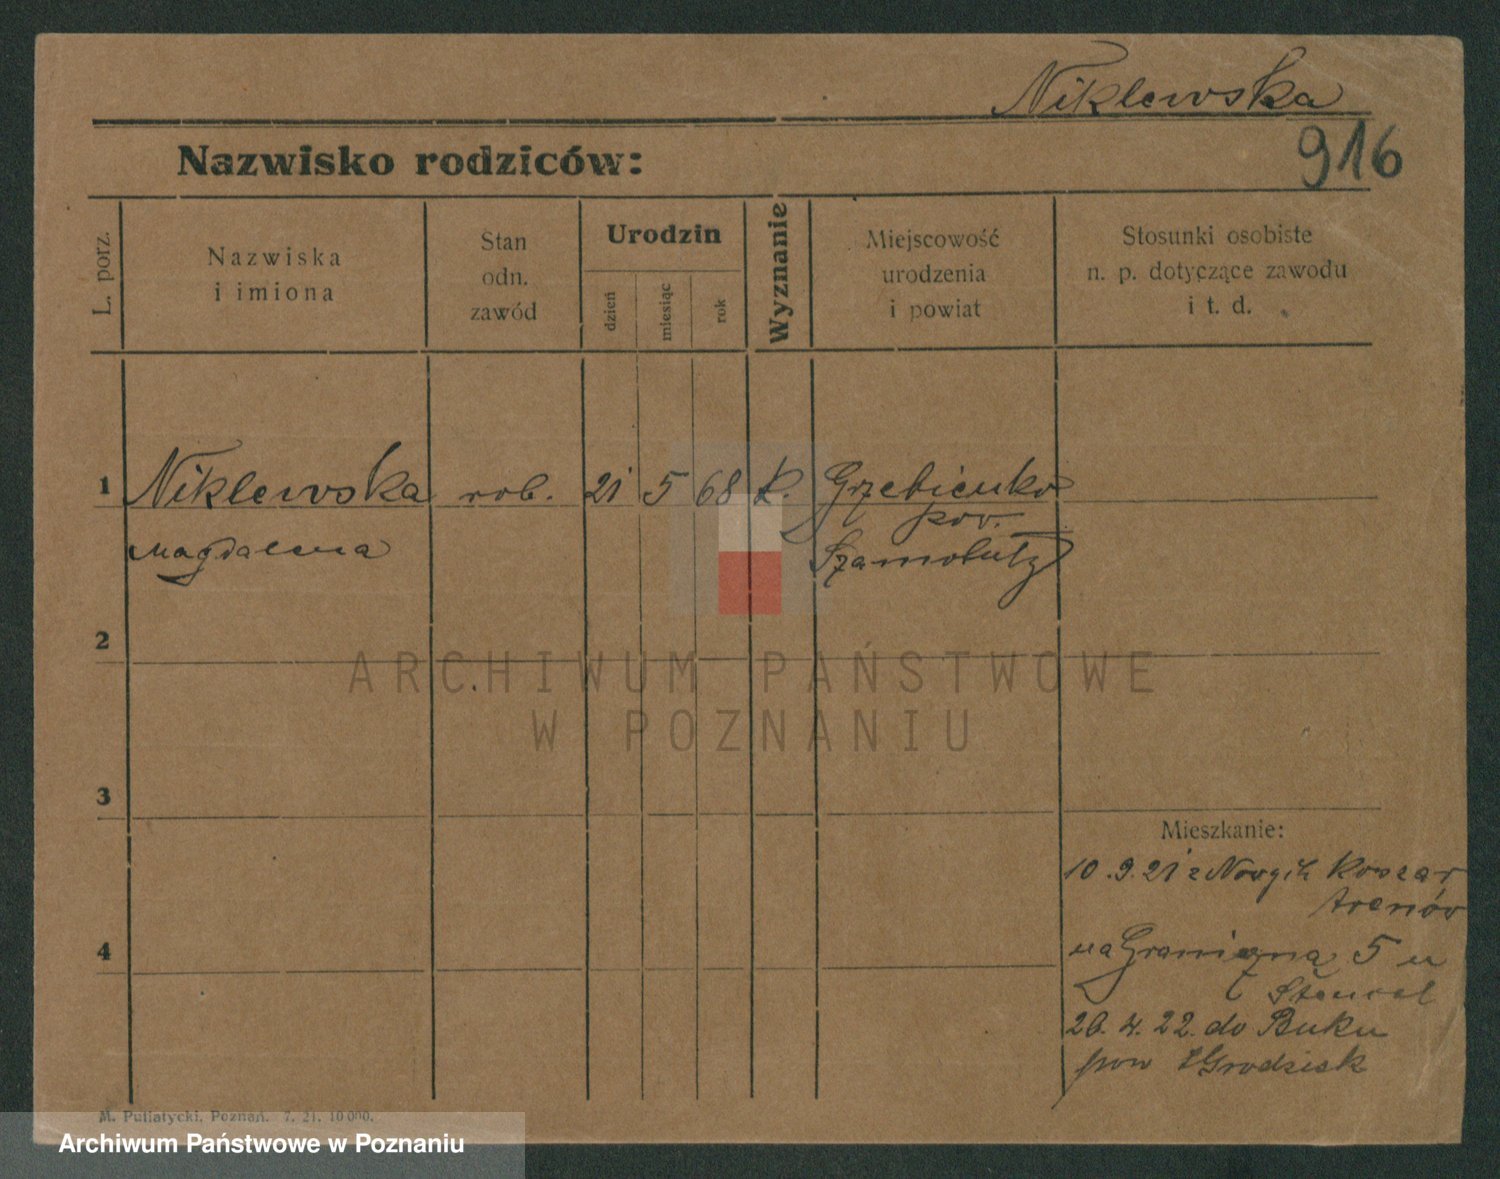 Niklewska
916
Nazwisko rodziców:
L. porz.
Nazwiska
i imiona
Stan
odn.
zawód
Urodzin
dzień
miesiąc
rok
Wyznanie
Miejscowość
urodzenia
i powiat
Stosunki osobiste
n. p. dotyczące zawodu
i t. d.
1 Niklewska rob. 21 5 68 k. Grzebienko
pow.
Magdalena Szamotuły
2
ARCHIWUM PAŃSTWOWE
W POZNANIU
3
Mieszkanie:
10.9.21 z Nowych Koszar
trenów
4
na Graniczną 5 u
Stencel
26.4.22. do Buku
pow Grodzisk
M. Putiatycki, Poznań. 7. 21. 10 000.
Archiwum Państwowe w Poznaniu